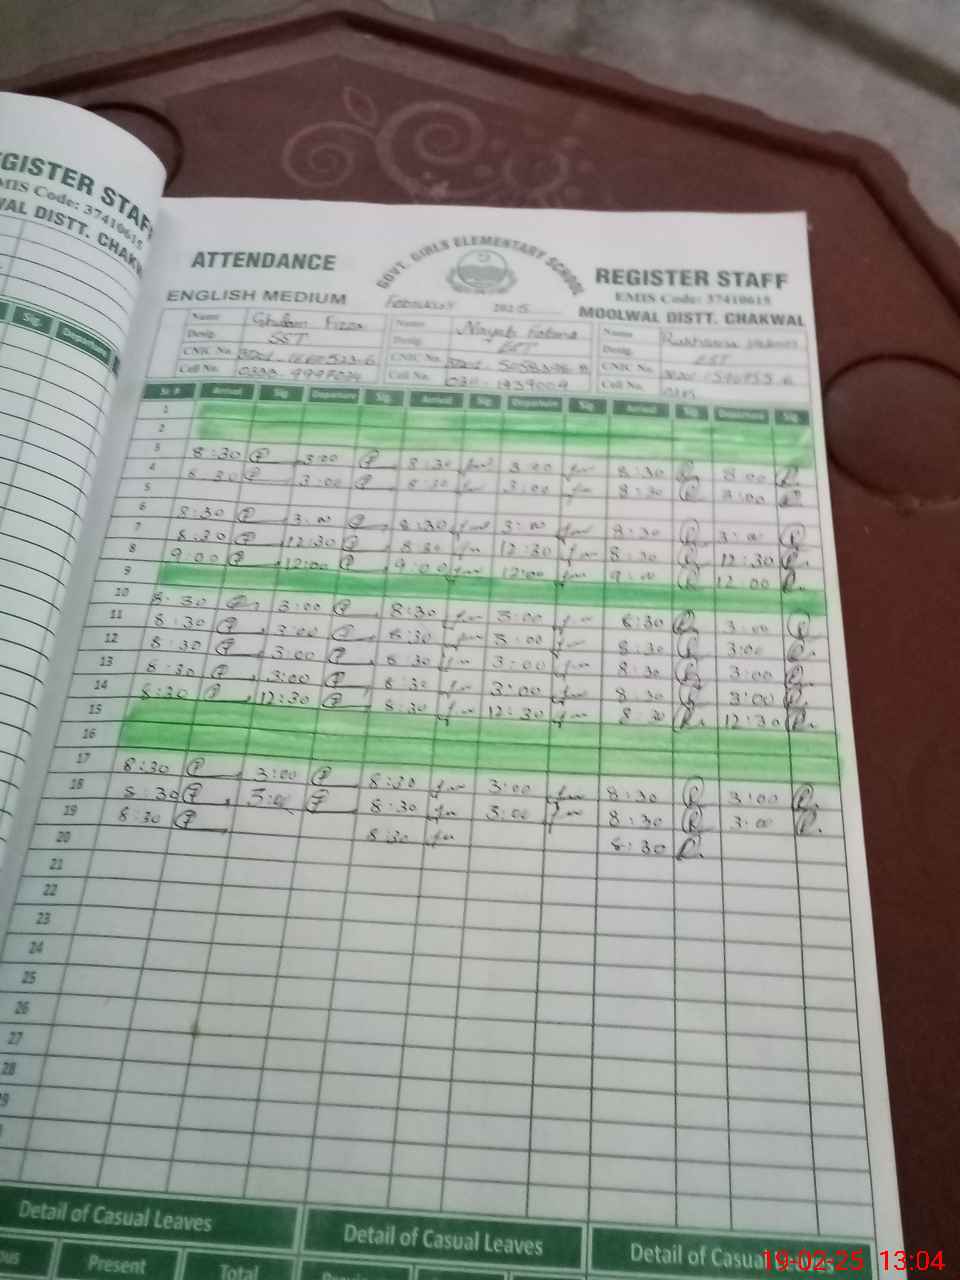 GISTER STAF
MIS Code: 37410615
WAL DISTT. CHAKW
Sig. Departure
GOVT. GIRLS ELEMENTARY SCHOOL
ATTENDANCE REGISTER STAFF
EMIS Code: 37410615
ENGLISH MEDIUM February 2025 MOOLWAL DISTT. CHAKWAL
Name Ghulam Fizza Name Nayab Fatima Name Rukhsana
Desig. SST Desig. EST Desig. EST
CNIC No. CNIC No. CNIC No.
Cell No. Cell No. Cell No.
Sr.# Arrival Sig. Departure Sig. Arrival Sig. Departure Sig. Arrival Sig. Departure Sig.
1
2
3 8:30 3:00 8:30 3:00 8:30 3:00
4 8:30 3:00 8:30 3:00 8:30 3:00
5
6 8:30 3:00 8:30 3:00 8:30 3:00
7 8:30 12:30 8:30 12:30 8:30 12:30
8 9:00 12:00 9:00 12:00 9:00 12:00
9
10 8:30 3:00 8:30 3:00 8:30 3:00
11 8:30 3:00 8:30 3:00 8:30 3:00
12 8:30 3:00 8:30 3:00 8:30 3:00
13 8:30 3:00 8:30 3:00 8:30 3:00
14 8:30 12:30 8:30 12:30 8:30 12:30
15
16
17 8:30 3:00 8:30 3:00 8:30 3:00
18 8:30 3:00 8:30 3:00 8:30 3:00
19 8:30 8:30 8:30
20
21
22
23
24
25
26
27
28
Detail of Casual Leaves Detail of Casual Leaves Detail of Casual Leaves
Present Total
19-02-25 13:04